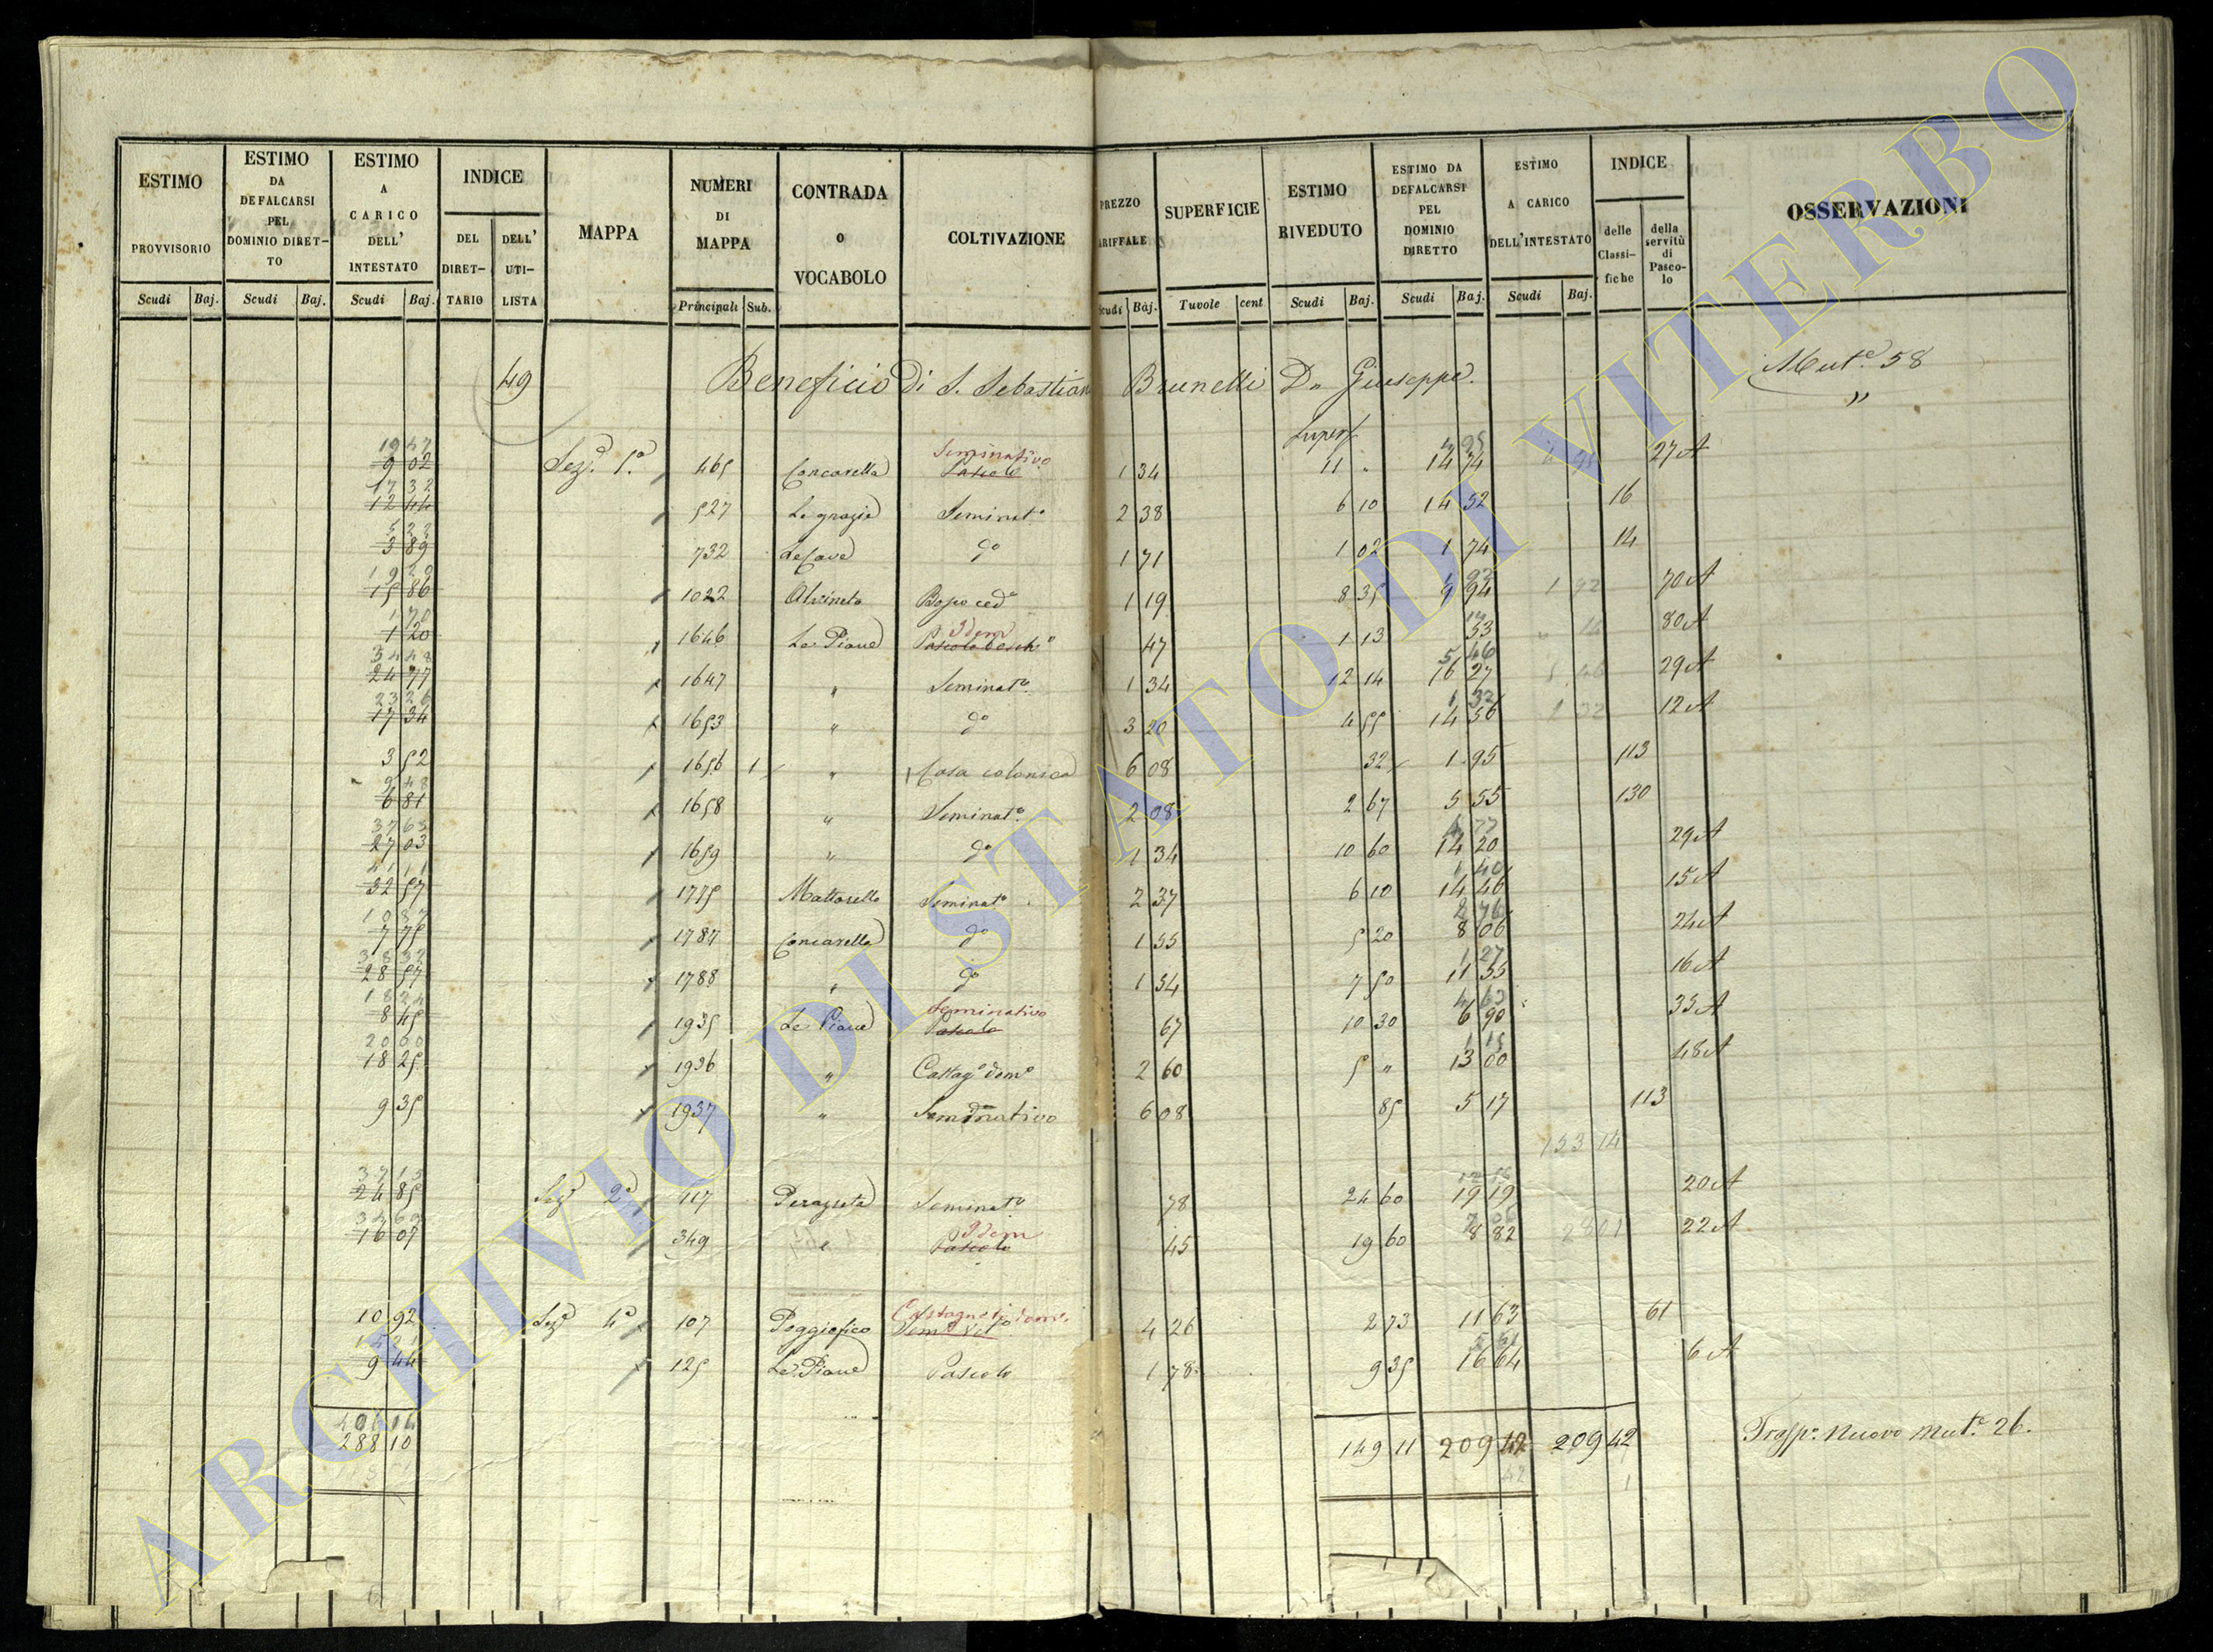 ESTIMO PROVVISORIO Scudi Baj.
ESTIMO DA DEFALCARSI PEL DOMINIO DIRETTO Scudi Baj.
ESTIMO A CARICO DELL' INTESTATO Scudi Baj.
INDICE DEL DIRETTARIO DELL' UTILISTA
MAPPA
NUMERI DI MAPPA Principali Sub.
CONTRADA O VOCABOLO
COLTIVAZIONE
PREZZO ARIFFALE Scudi Baj.
SUPERFICIE Tavole cent
ESTIMO RIVEDUTO Scudi Baj.
ESTIMO DA DEFALCARSI PEL DOMINIO DIRETTO Scudi Baj.
ESTIMO A CARICO DELL'INTESTATO Scudi Baj.
INDICE delle Classifiche della servitù di Pascolo
OSSERVAZIONI
49 Beneficio di S. Sebastian Brunelli Dn Giuseppe. Mut.e 58
"
Superf.
19 47
9 02 Sez.e 1.a 465 Concarella Seminativo Pascolo 1 34 11 " 14 74 27 A
17 32
12 44 527 Le grazie Seminat.o 2 38 6 10 14 52 16
5 22
3 89 732 Le Cave do 1 71 1 02 1 74 14
19 20
15 86 1022 Alvineto Bosco ced.o 1 19 8 35 9 94 1 92 70 A
1 70
1 20 1646 Le Piane Idem 47 1 13 53 80 A
34 48
24 77 1647 " Seminat.o 1 34 12 14 16 27 5 46 29 A
23 26
17 34 1653 " do 3 20 4 55 14 56 1 32 12 A
3 52 1656 1 " Casa colonica 6 08 32 1 95 113
9 48
6 81 1658 " Seminat.o 2 08 2 67 5 55 130
37 63
27 03 1659 " do 1 34 10 60 14 20 29 A
41 11
32 57 1775 Mattarella Seminat.o 2 37 6 10 14 46 1 40 15 A
10 87
7 75 1787 Concarella do 1 55 5 20 8 06 2 76 24 A
38 32
28 57 1788 " do 1 54 7 50 11 55 1 27 16 A
18 24
8 45 1935 Le Piane Seminativo Pascolo 67 10 30 6 90 4 63 33 A
20 60
18 25 1936 " Castag.o dom.o 2 60 5 " 13 00 48 A
9 35 1937 " Seminativo 6 08 85 5 17 113
153 14
37 15
24 85 Sez.e 2.a 117 Perazzeta Seminat.o 78 24 60 19 19 20 A
16 07 349 " Idem Pascolo 45 19 60 8 82 28 01 22 A
10 92 Sez.e 4.a 107 Poggiofico Castagneti dom. Sem.o Vit.o 4 26 2 73 11 63 61
9 44 125 Le Piane Pascolo 1 78 9 35 16 64 6 A
406 14
288 10 149 11 209 42 209 42 Trasp.o Nuovo Mut.e 26.
42 1
ARCHIVIO DI STATO DI VITERBO